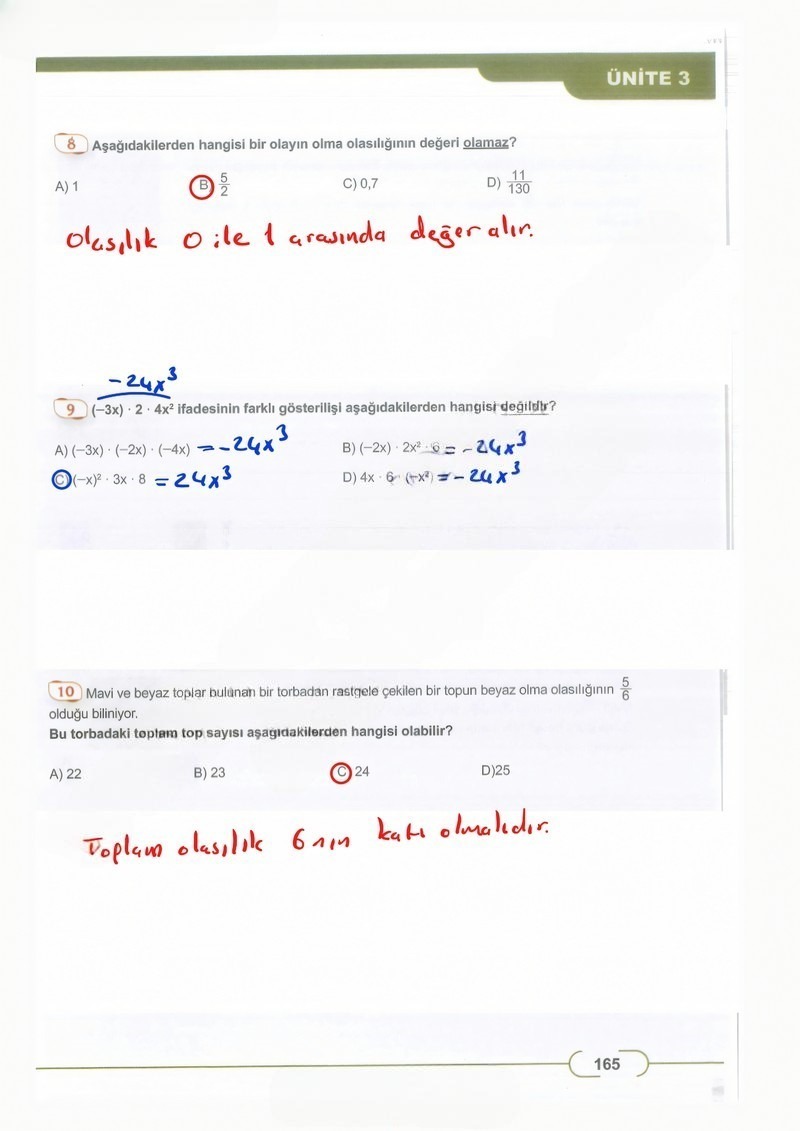 ÜNİTE 3
8 Aşağıdakilerden hangisi bir olayın olma olasılığının değeri olamaz?
A) 1 B) 5/2 C) 0,7 D) 11/130
Olasılık 0 ile 1 arasında değer alır.
-24x³
9 (−3x) · 2 · 4x² ifadesinin farklı gösterilişi aşağıdakilerden hangisi değildir?
A) (−3x) · (−2x) · (−4x) = -24x³ B) (−2x) · 2x² · 6 = -24x³
C) (−x)² · 3x · 8 = 24x³ D) 4x · 6 · (−x²) = -24x³
10 Mavi ve beyaz toplar bulunan bir torbadan rastgele çekilen bir topun beyaz olma olasılığının 5/6
olduğu biliniyor.
Bu torbadaki toplam top sayısı aşağıdakilerden hangisi olabilir?
A) 22 B) 23 C) 24 D)25
Toplam olasılık 6 nın katı olmalıdır.
165